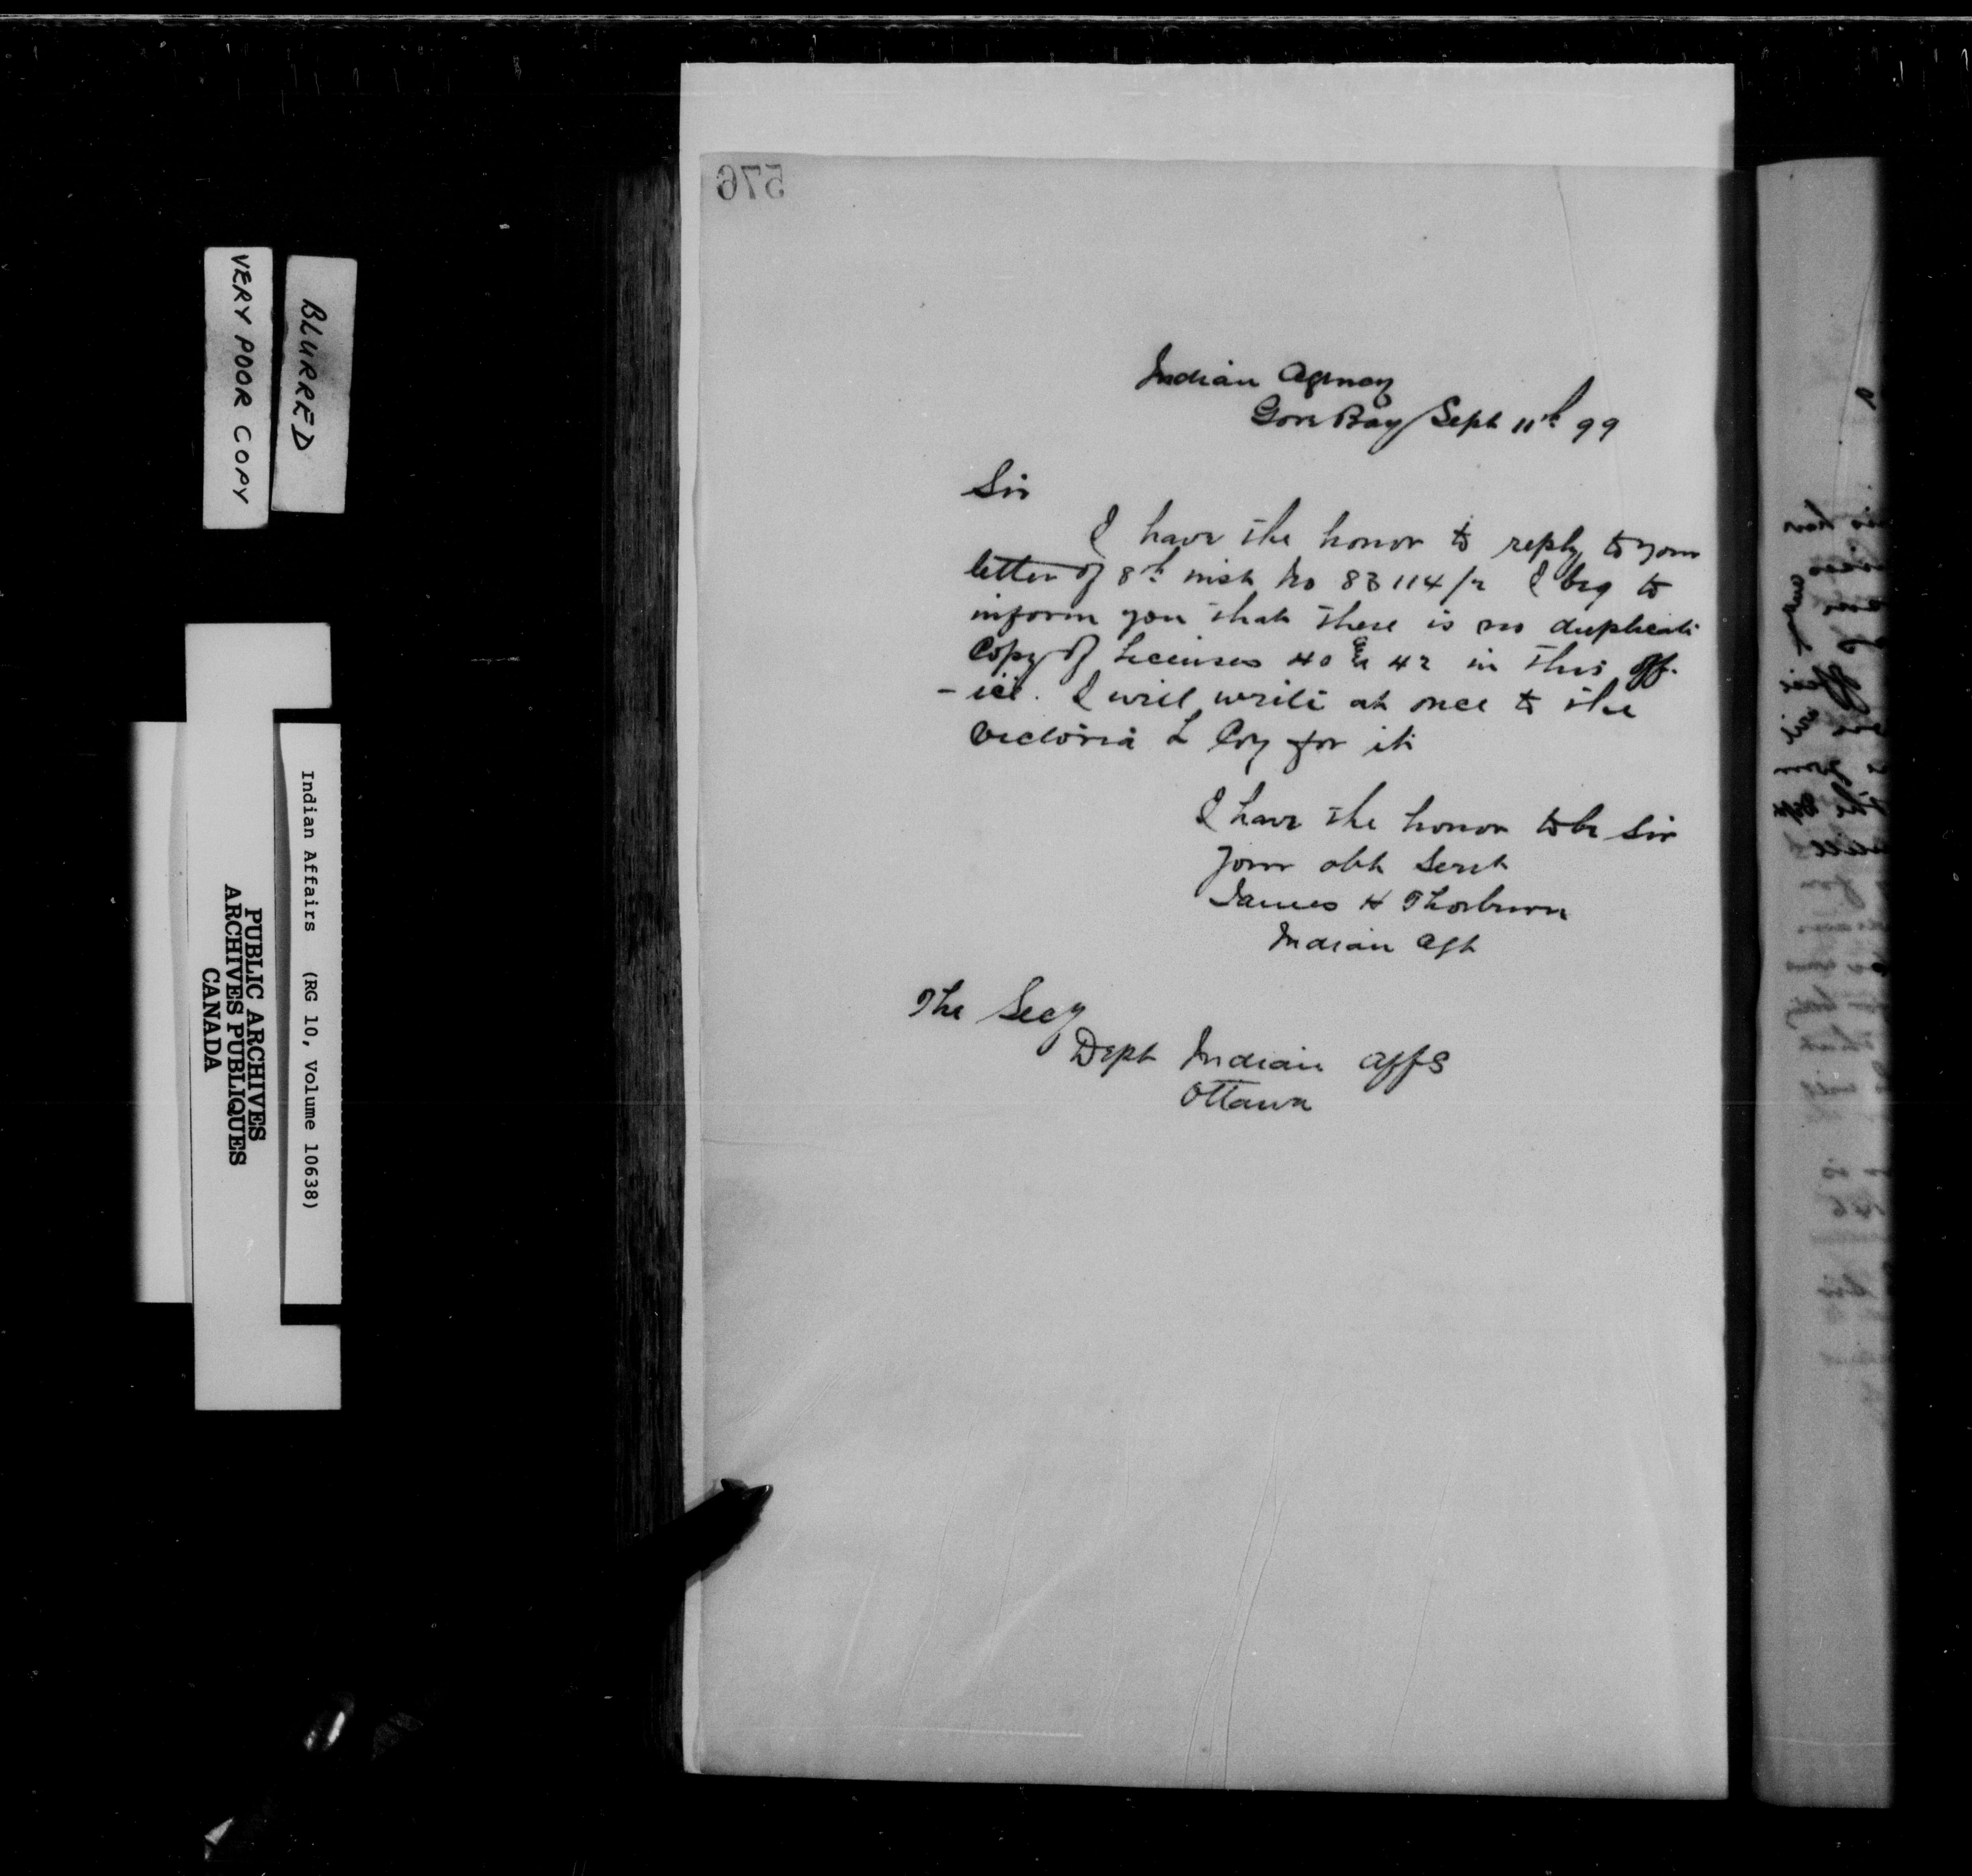 576
Indian Agency
Gore Bay Sept 11th 99
Sir
I have the honor to reply to your
letter of 8th inst No 83114/2 I beg to
inform you that there is no duplicate
Copy of Licenses 40 & 42 in this off-
-ice. I will write at once to the
Victoria L Coy for it
I have the honor to be Sir
Your obt Servt
James H Thorburn
Indian Agt
The Secy
Dept Indian Affs
Ottawa
BLURRED
VERY POOR COPY
Indian Affairs (RG 10, Volume 10638)
PUBLIC ARCHIVES
ARCHIVES PUBLIQUES
CANADA